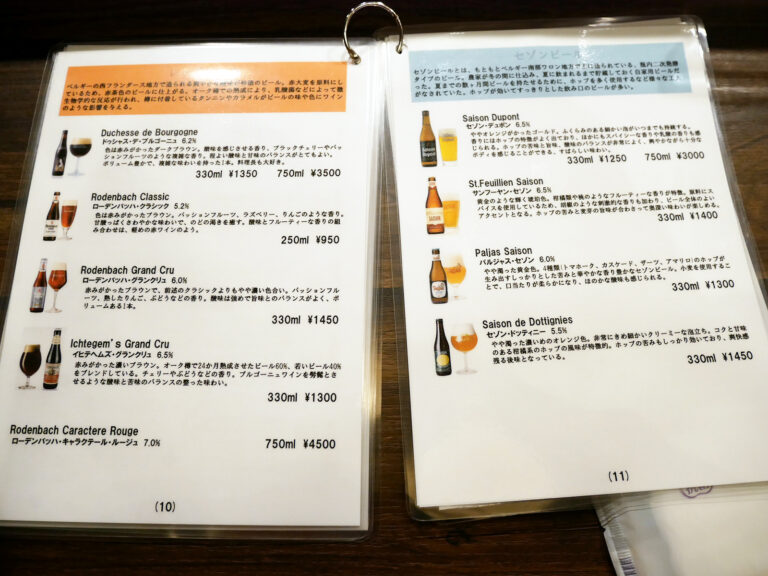 ベルギーの西フランダース地方で造られる爽やかな酸味が特徴のビール。赤大麦を原料にし
ているため、赤茶色のビールに仕上がる。オーク樽での熟成により、乳酸菌などによって微
生物学的な反応が行われ、樽に付着しているタンニンやカラメルがビールの味や色にワイン
のような影響を与える。
Duchesse de Bourgogne
ドゥシャス・デ・ブルゴーニュ 6.2%
色は赤みがかったダークブラウン。酸味を感じさせる香り、ブラックチェリーやパッ
ションフルーツのような複雑な香り。程よい酸味と甘味のバランスがとてもよい。
ボリューム豊かで、複雑な味わいを持った1本。料理長も大好き。
330ml ¥1350 750ml ¥3500
Rodenbach Classic
ローデンバッハ・クラシック 5.2%
色は赤みがかったブラウン。パッションフルーツ、ラズベリー、りんごのような香り。
甘酸っぱくさわやかな味わいで、のどの渇きを癒す。酸味とフルーティーな香りの組
み合わせは、軽めの赤ワインのよう。
250ml ¥950
Rodenbach Grand Cru
ローデンバッハ・グランクリュ 6.0%
赤みがかったブラウンで、前述のクラシックよりもやや濃い色合い。パッションフルー
ツ、熟したりんご、ぶどうなどの香り。酸味は強めで旨味とのバランスがよく、ボ
リュームある1本。
330ml ¥1450
Ichtegem's Grand Cru
イヒテヘムズ・グランクリュ 6.5%
赤みがかった濃いブラウン。オーク樽で24か月熟成させたビール60%、若いビール40%
をブレンドしている。チェリーやぶどうなどの香り。ブルゴーニュワインを髣髴とさ
せるような酸味と苦味のバランスの整った味わい。
330ml ¥1300
Rodenbach Caractere Rouge
ローデンバッハ・キャラクテール・ルージュ 7.0%
750ml ¥4500
(10)
セゾンビール
セゾンビールとは、もともとベルギー南部ワロン地方で造られている、瓶内二次発酵
タイプのビール。農家が冬の間に仕込み、夏に飲まれるまで貯蔵しておく自家用ビールだ
った。夏までの数ヶ月間ビールを持たせるために、ホップを多く使用するなど様々な工夫
がなされていた。ホップが効いてすっきりとした飲み口のビールが多い。
Saison Dupont
セゾン・デュポン 6.5%
ややオレンジがかったゴールド。ふくらみのある細かい泡がいつまでも持続する。
香りにはホップ香がしっかりとあり、ほのかにスパイシーな香りや乳酸の香りも感
じられる。ホップの苦味と旨味、酸味のバランスが非常によく、爽やかながら十分な
ボディを感じることができる、すばらしい味わい。
330ml ¥1250 750ml ¥3000
St.Feuillien Saison
サンフーヤン・セゾン 6.5%
黄金のような輝く琥珀色。柑橘類や桃のようなフルーティーな香りが特徴。原料にス
パイスを使用しているため、胡椒のような刺激的な香りも加わり、ビール全体のよい
アクセントとなる。ホップの苦みと麦芽の旨味が合わさって奥深い味わいが楽しめる。
330ml ¥1400
Paljas Saison
パルジャス・セゾン 6.0%
やや濁った黄金色。4種類(トマホーク、カスケード、ザーツ、アマリロ)のホップが
生み出すしっかりとした苦みと華やかな香り豊かなセゾンビール。小麦を使用するこ
とで、口当たりが柔らかになり、ほのかな酸味も感じられる。
330ml ¥1300
Saison de Dottignies
セゾン・ドッティニー 5.5%
やや濁った濃いめのオレンジ色。非常にきめ細かクリーミーな泡立ち。コクと甘味
のある柑橘系のホップの風味が特徴的。ホップの苦みもしっかり効いており、爽快感
残る後味となっている。
330ml ¥1450
(11)